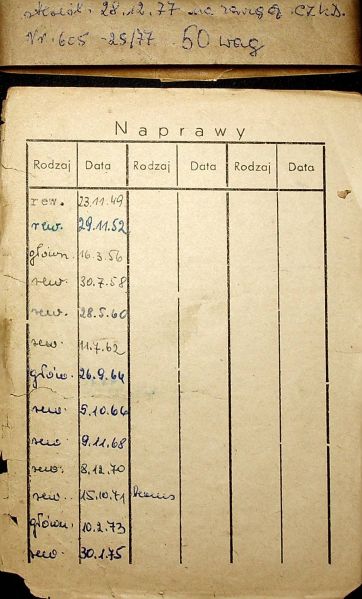 28.12.77 na
Nr. 605-25/77 50 wag
Naprawy
Rodzaj Data Rodzaj Data Rodzaj Data
rew. 23.11.49
rew. 29.11.52
główn. 16.3.56
rew. 30.7.58
rew. 28.5.60
rew. 11.7.62
główn. 26.9.64
rew. 5.10.66
rew. 9.11.68
rew. 8.12.70
rew. 15.10.71
główn. 10.2.73
rew. 30.1.75